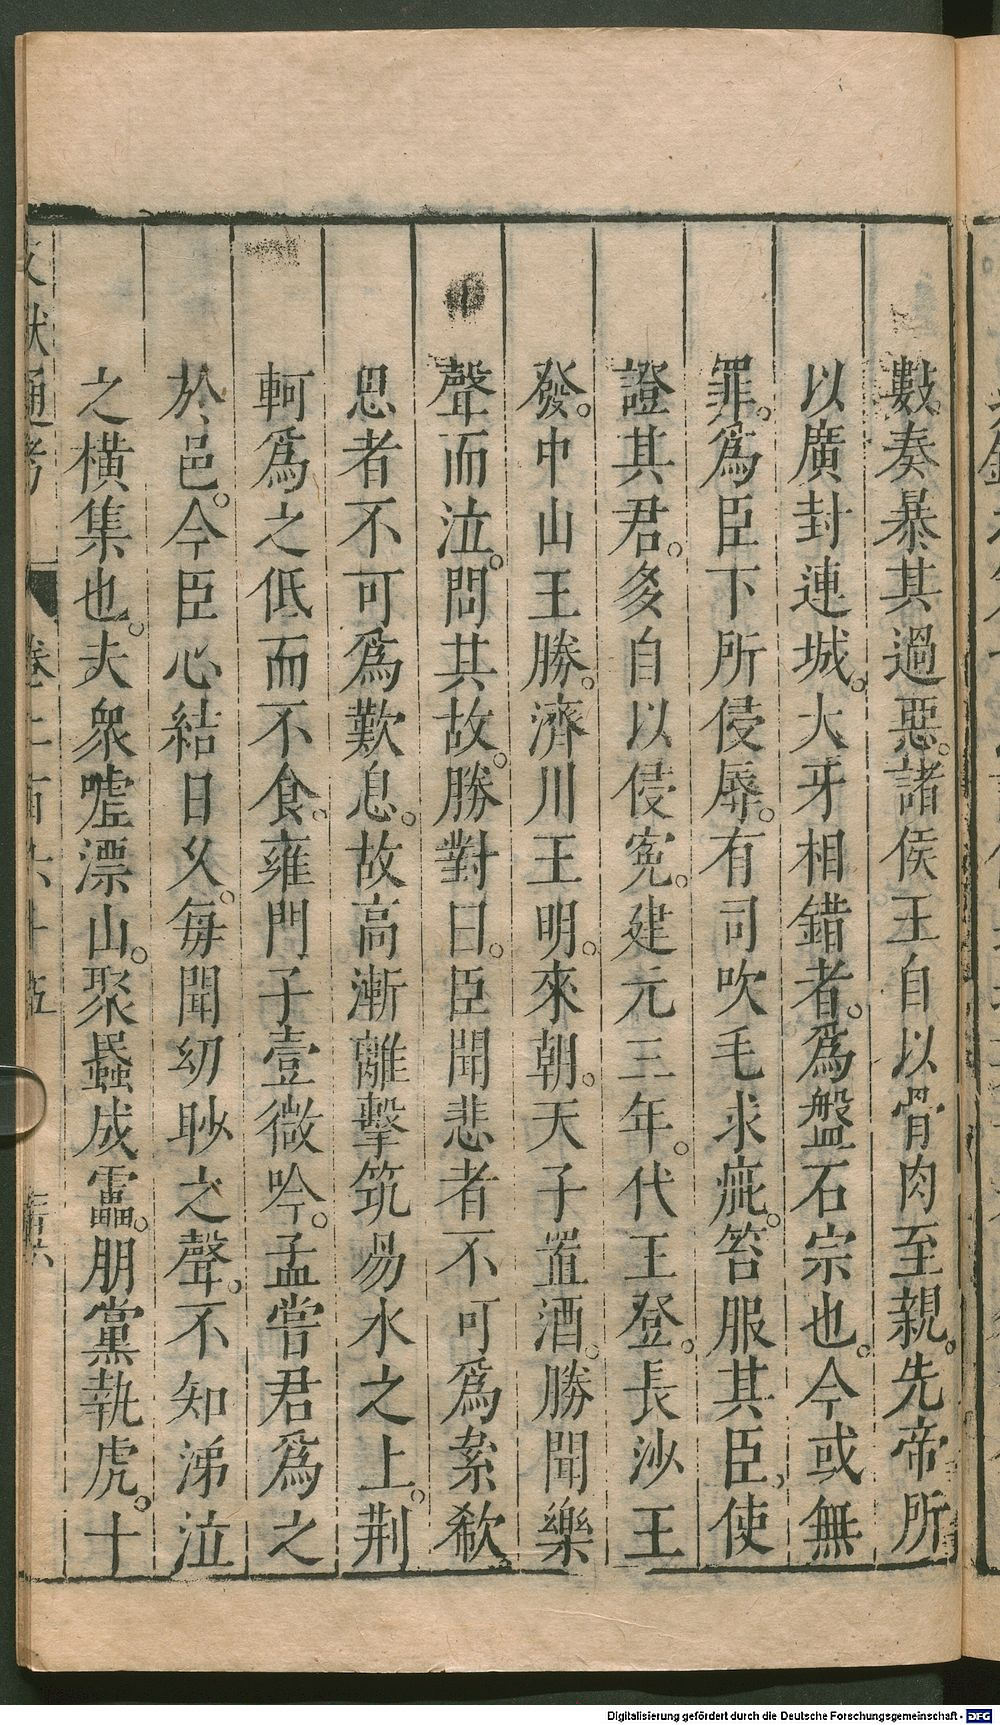 數奏暴其過惡。諸侯王自以骨肉至親。先帝所
以廣封連城。犬牙相錯者。爲盤石宗也。今或無
罪。爲臣下所侵辱。有司吹毛求疵。笞服其臣。使
證其君。多自以侵寃。建元三年。代王登。長沙王
發。中山王勝。濟川王明。來朝。天子置酒。勝聞樂
聲而泣。問其故。勝對曰。臣聞悲者不可爲絫欷。
思者不可爲歎息。故高漸離擊筑易水之上。荆
軻爲之低而不食。雍門子壹微吟。孟嘗君爲之
於邑。今臣心結日久。每聞幼眇之聲。不知涕泣
之橫集也。夫衆噓漂山。聚蟁成靁。朋黨執虎。十
文獻通考 卷二百六十五
Digitalisierung gefördert durch die Deutsche Forschungsgemeinschaft - DFG